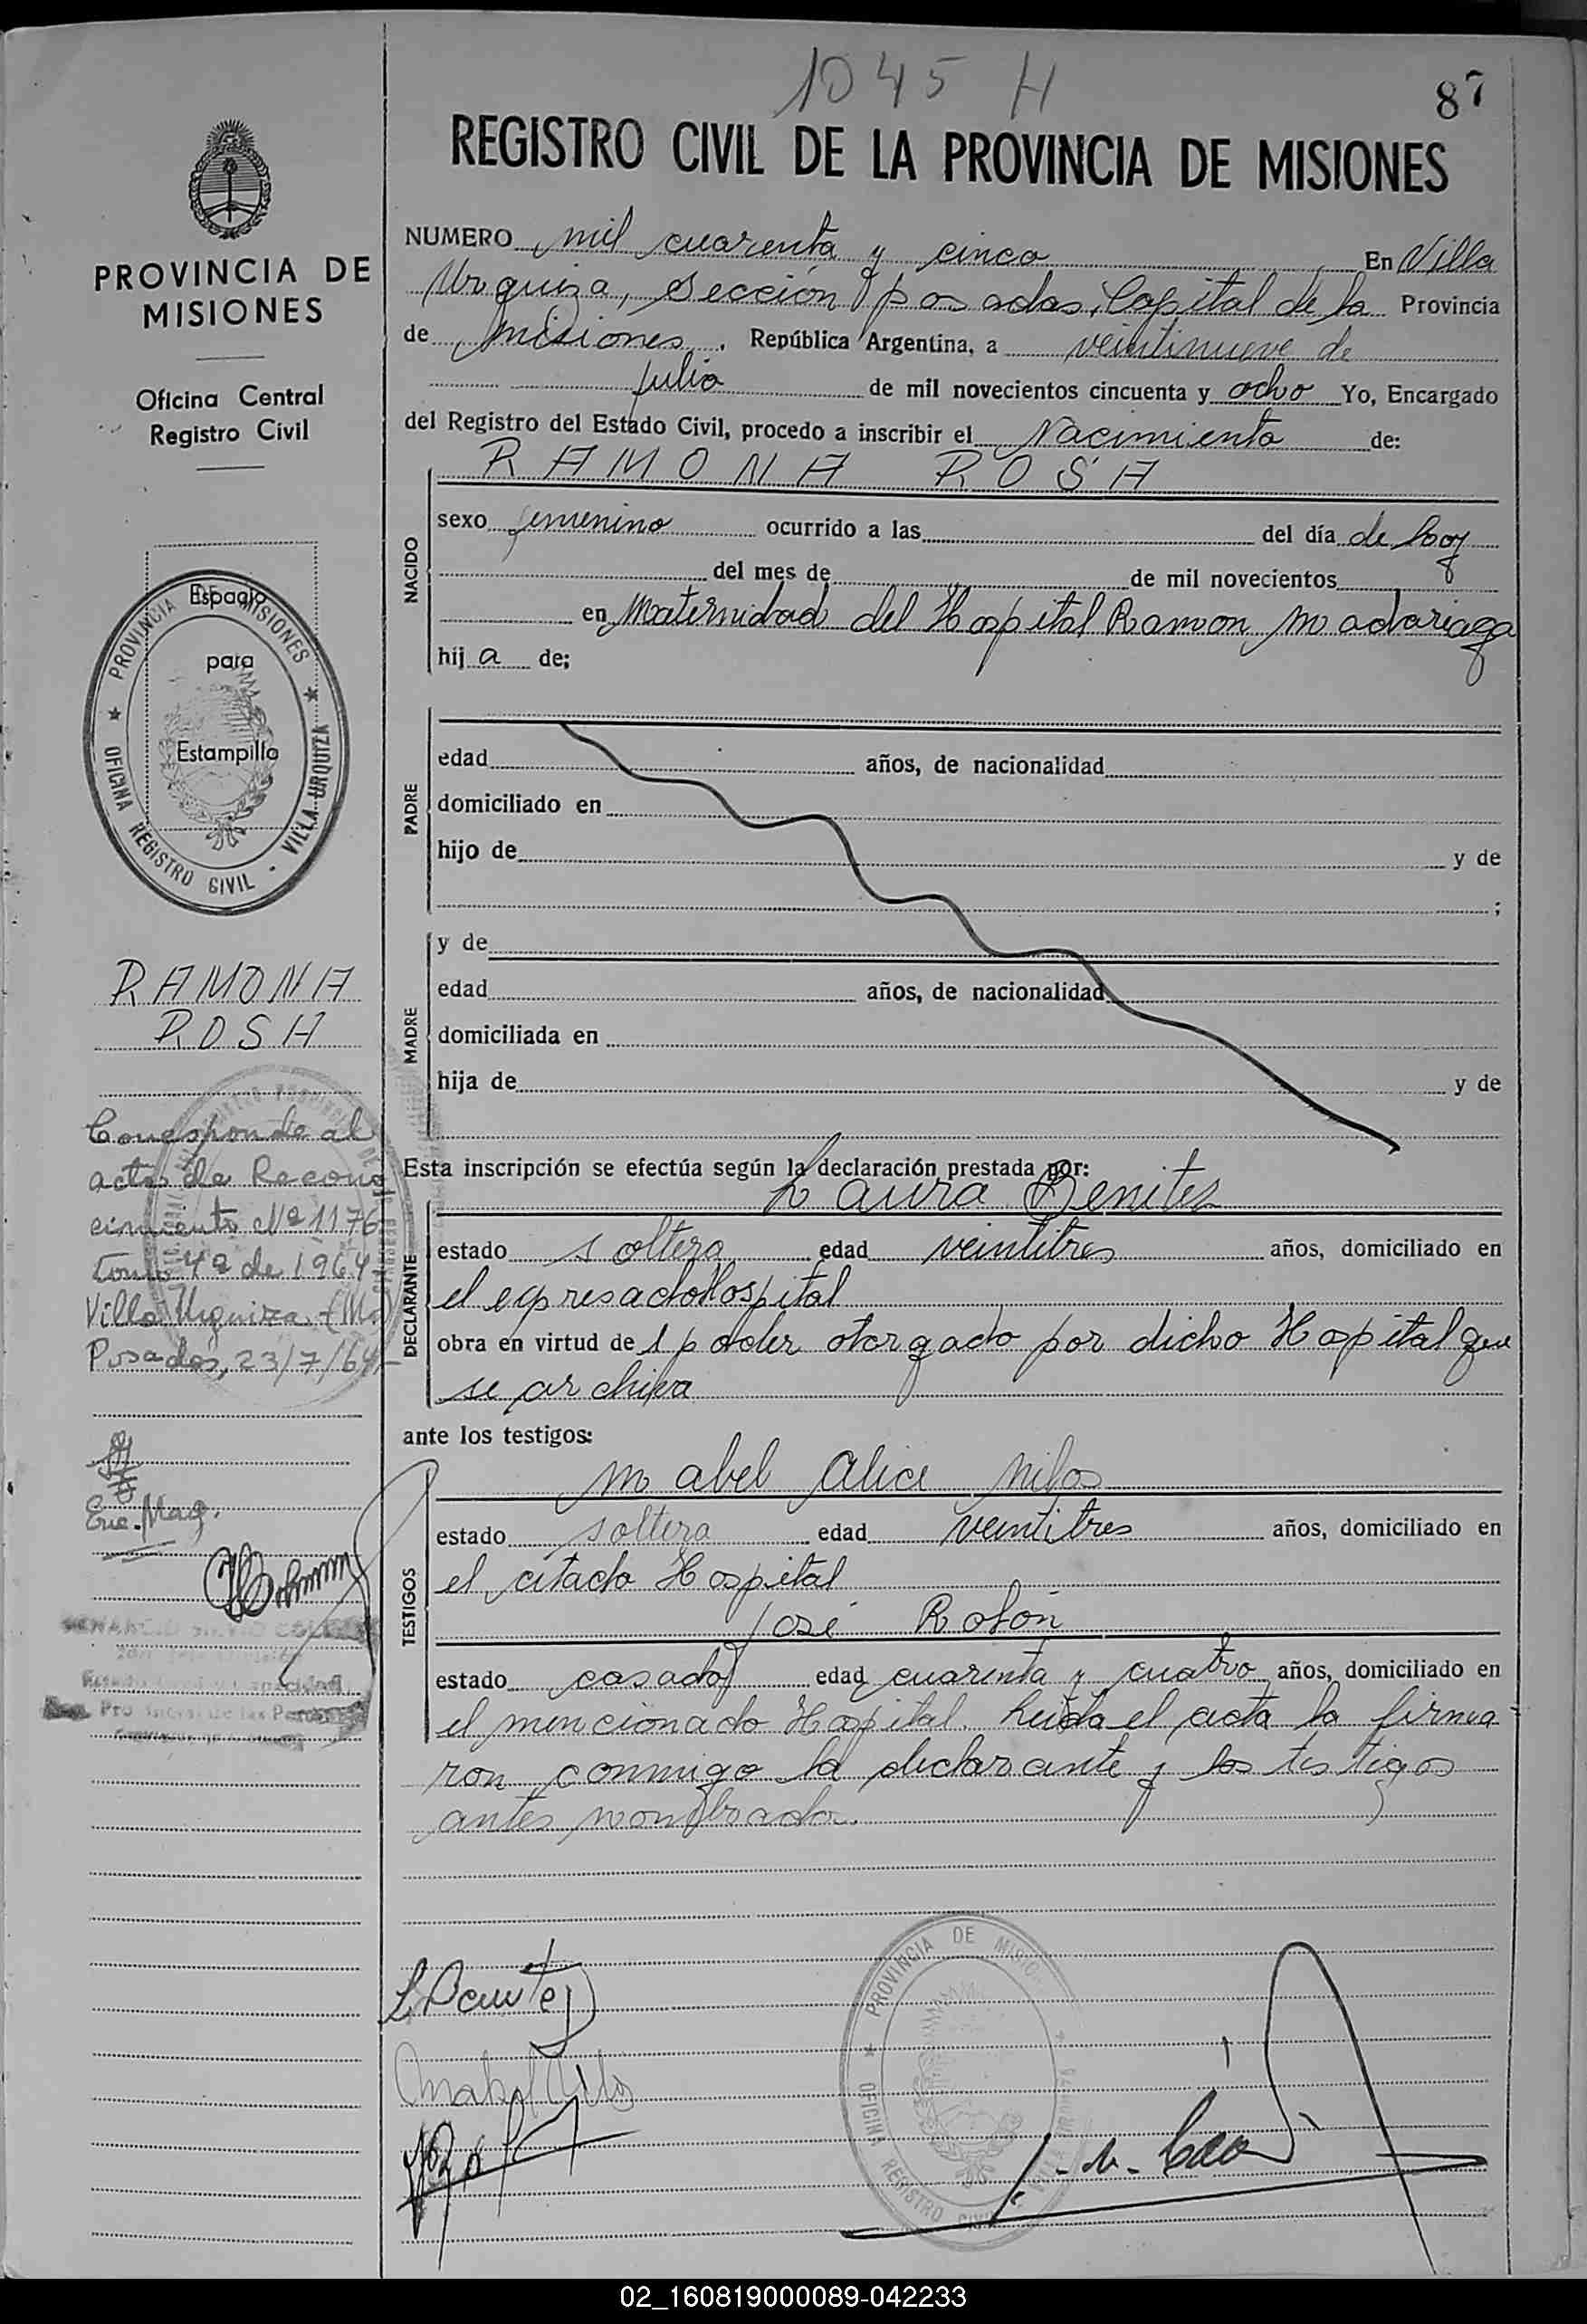 1045 H
87
REGISTRO CIVIL DE LA PROVINCIA DE MISIONES
PROVINCIA DE
MISIONES
Oficina Central
Registro Civil
Espacio
para
Estampilla
PROVINCIA DE MISIONES
OFICINA REGISTRO CIVIL - VILLA URQUIZA
RAMONA
ROSA
Corresponde al
acta de Recono
cimiento Nº 1176
tomo 4º de 1964
Villa Urquiza (Ms)
Posadas, 23/7/64
Enc. Maq.
NUMERO mil cuarenta y cinco En Villa
Urquiza, Sección Posadas, Capital de la Provincia
de Misiones, República Argentina, a veintinueve de
julio de mil novecientos cincuenta y ocho Yo, Encargado
del Registro del Estado Civil, procedo a inscribir el Nacimiento de:
NACIDO
RAMONA ROSA
sexo femenino ocurrido a las del día de hoy
del mes de de mil novecientos
en Maternidad del Hospital Ramon Madariaga
hij a de;
PADRE
edad años, de nacionalidad
domiciliado en
hijo de y de
;
MADRE
y de
edad años, de nacionalidad
domiciliada en
hija de y de
Esta inscripción se efectúa según la declaración prestada por:
DECLARANTE
Laura Benitez
estado soltera edad veintitres años, domiciliado en
el expresado Hospital
obra en virtud de 1 poder otorgado por dicho Hospital que
se archiva
ante los testigos:
TESTIGOS
Mabel Alice Nilos
estado soltera edad veintitres años, domiciliado en
el citado Hospital
José Rolón
estado casado edad cuarenta y cuatro años, domiciliado en
el mencionado Hospital. Leida el acta la firma=
ron conmigo la declarante y los testigos
antes nombrados.
L Benitez
PROVINCIA DE MISIONES
OFICINA REGISTRO CIVIL
02_160819000089-042233